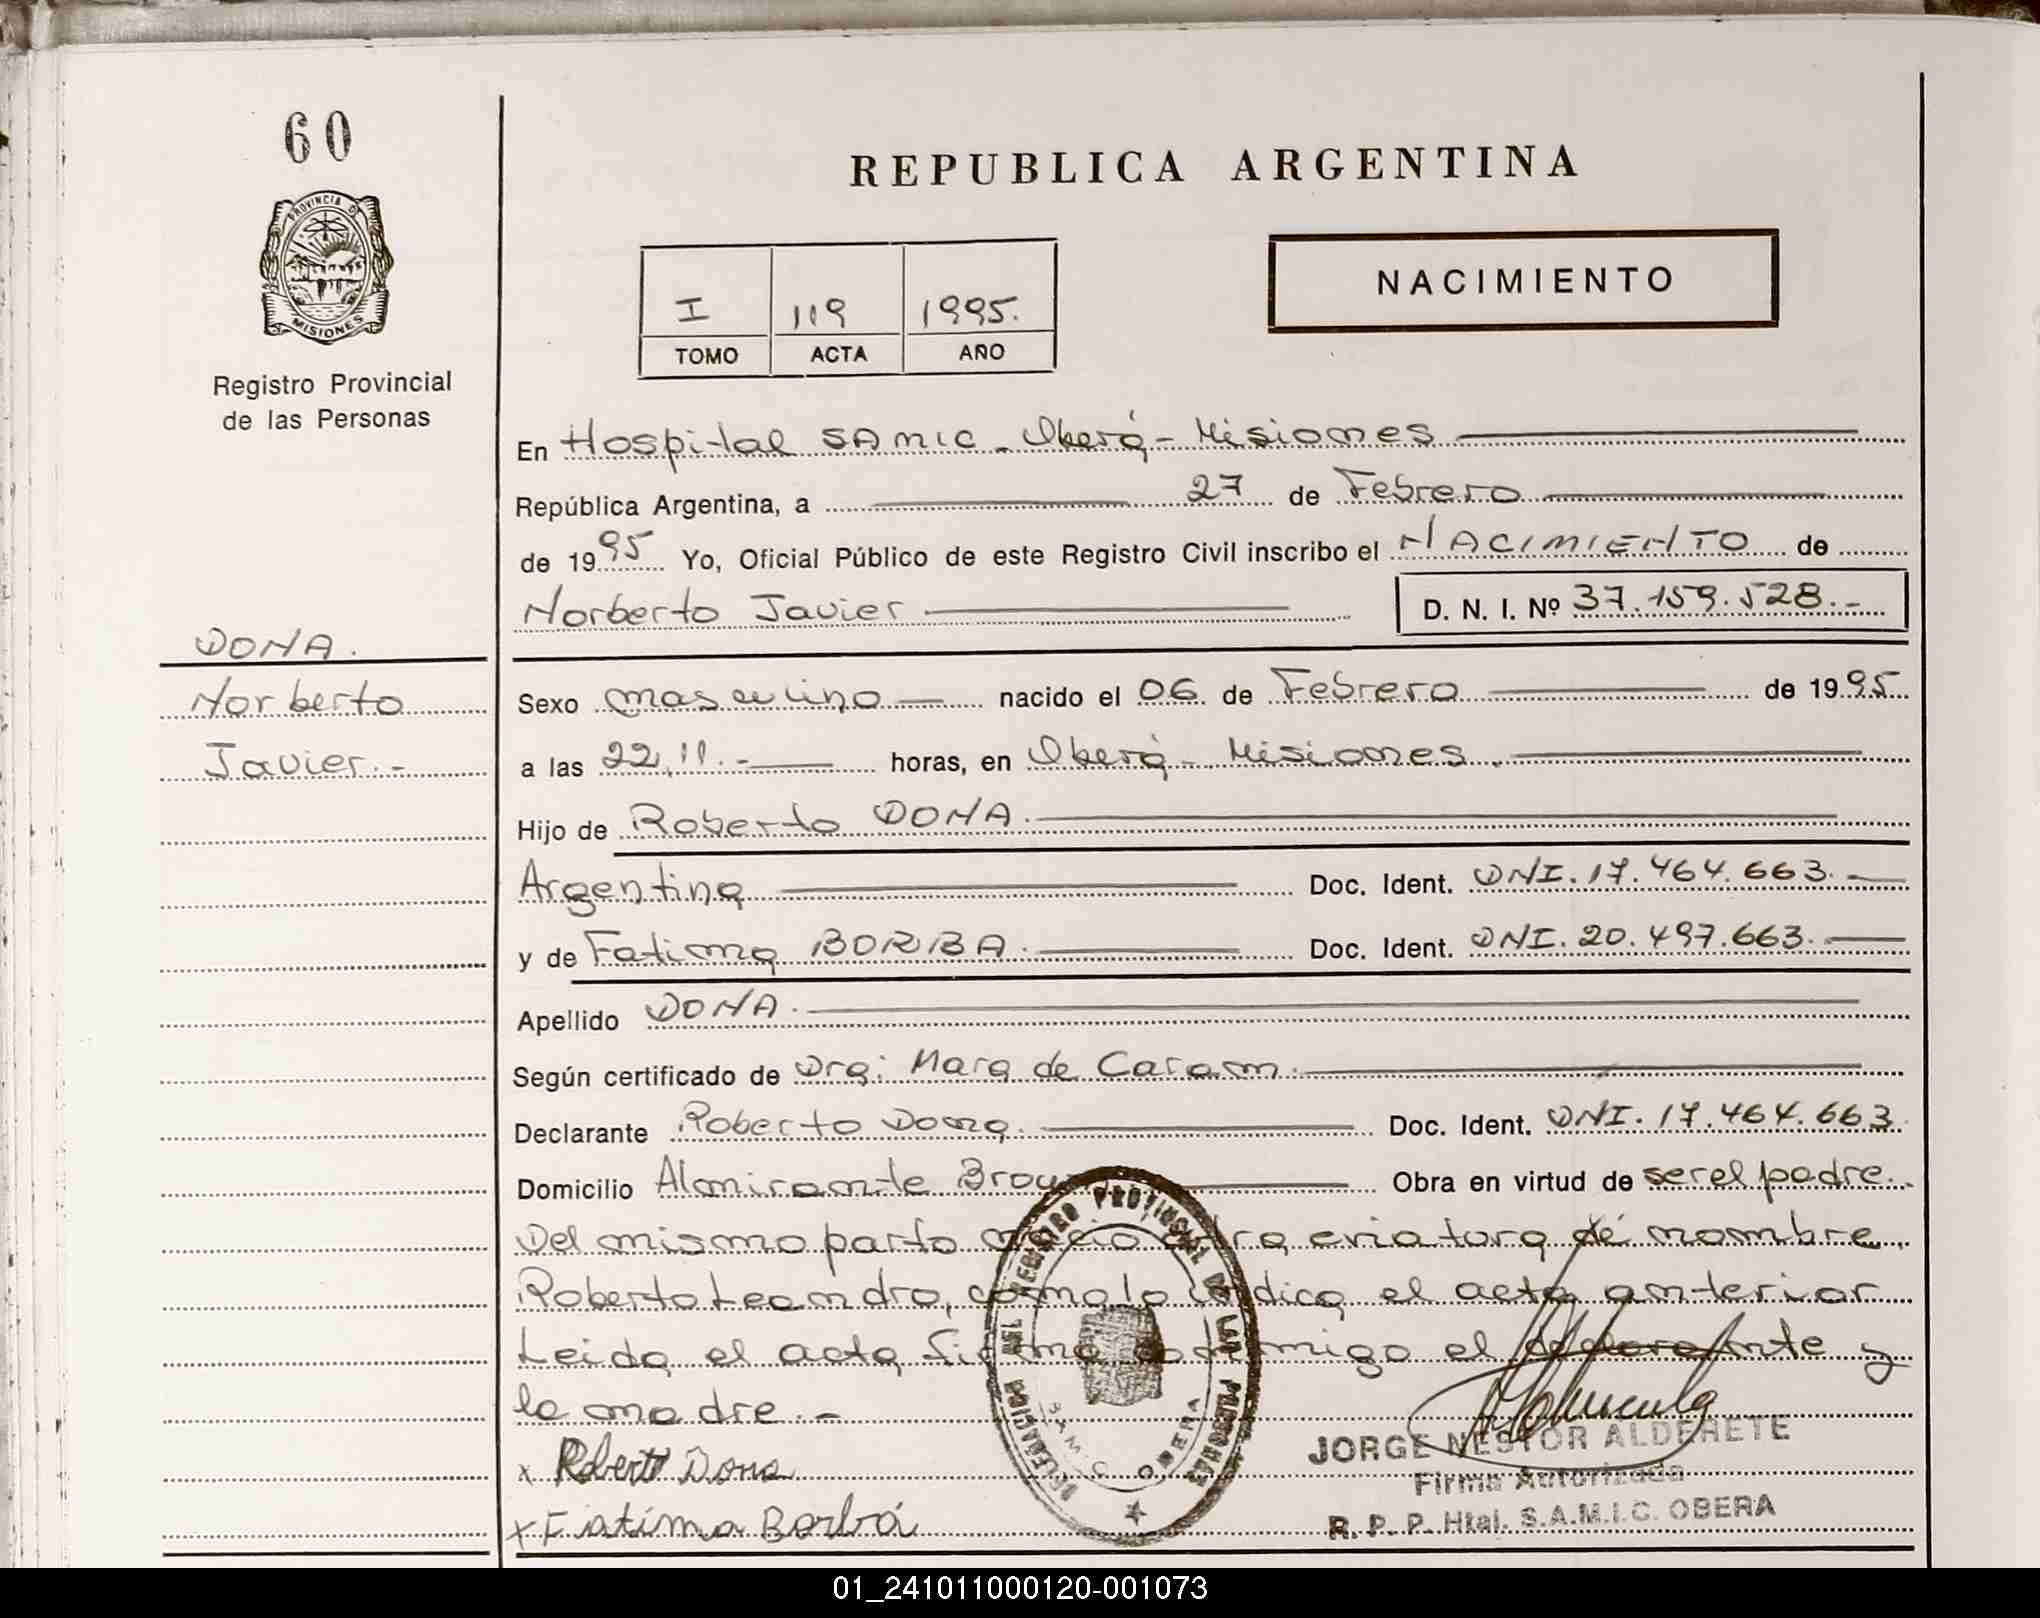 60
REPUBLICA ARGENTINA
PROVINCIA DE
MISIONES
Registro Provincial
de las Personas
I 119 1995.
TOMO ACTA AÑO
NACIMIENTO
En Hospital SAMIC - Oberá - Misiones
República Argentina, a 27 de Febrero
de 1995 Yo, Oficial Público de este Registro Civil inscribo el NACIMIENTO de
Norberto Javier D. N. I. Nº 37.159.528.-
DONA.
Norberto
Javier.-
Sexo masculino nacido el 06 de Febrero de 1995
a las 22,11.- horas, en Oberá - Misiones.
Hijo de Roberto DONA.
Argentina Doc. Ident. DNI. 17.464.663.
y de Fatima BORBA. Doc. Ident. DNI. 20.497.663.
Apellido DONA.
Según certificado de Dra: Mara de Caram.
Declarante Roberto Dona. Doc. Ident. DNI. 17.464.663
Domicilio Almirante Obra en virtud de ser el padre.
Del mismo parto nació otra criatura de nombre
Roberto Leandro, como lo indica el acta anterior
Leida el acta firma conmigo el declarante y
la madre.-
x Roberto Dona
x Fatima Borbá
DELEGACION DEL REGISTRO PROVINCIAL DE LAS PERSONAS
S.A.M.I.C. OBERA
JORGE NESTOR ALDERETE
Firma Autorizada
R. P. P. Htal. S.A.M.I.C. OBERA
01_241011000120-001073